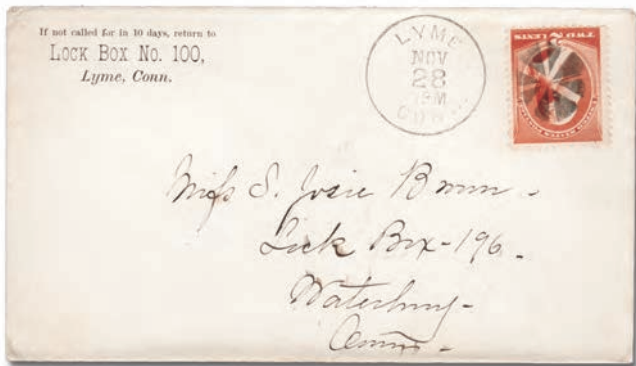 If not called for in 10 days, return to
Lock Box No. 100,
Lyme, Conn.
LYME
NOV
28
CONN.
TWO 2 CENTS
Miss S. Josie Brown -
Lock Box - 196 -
Waterbury -
Conn -